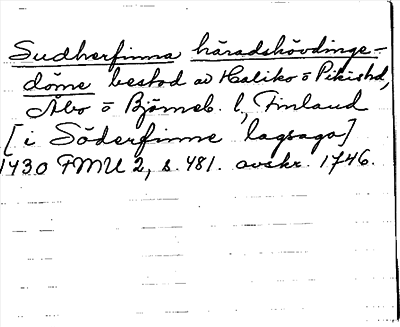 Sudherfinna häradshövdinge-
döme bestod av Haliko o Pikishd,
Åbo o Björneb. l, Finland
[i Söderfinne lagsaga]
1430 FMU 2, s. 481. avskr. 1746.